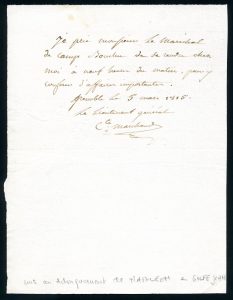 Je prie monsieur le Maréchal
de camp Boulon de se rendre chez
moi à neuf heures du matin, pour y
conférer d'affaires importantes.
Grenoble le 5 mars 1815.
Le lieutenant général
Cte marchand